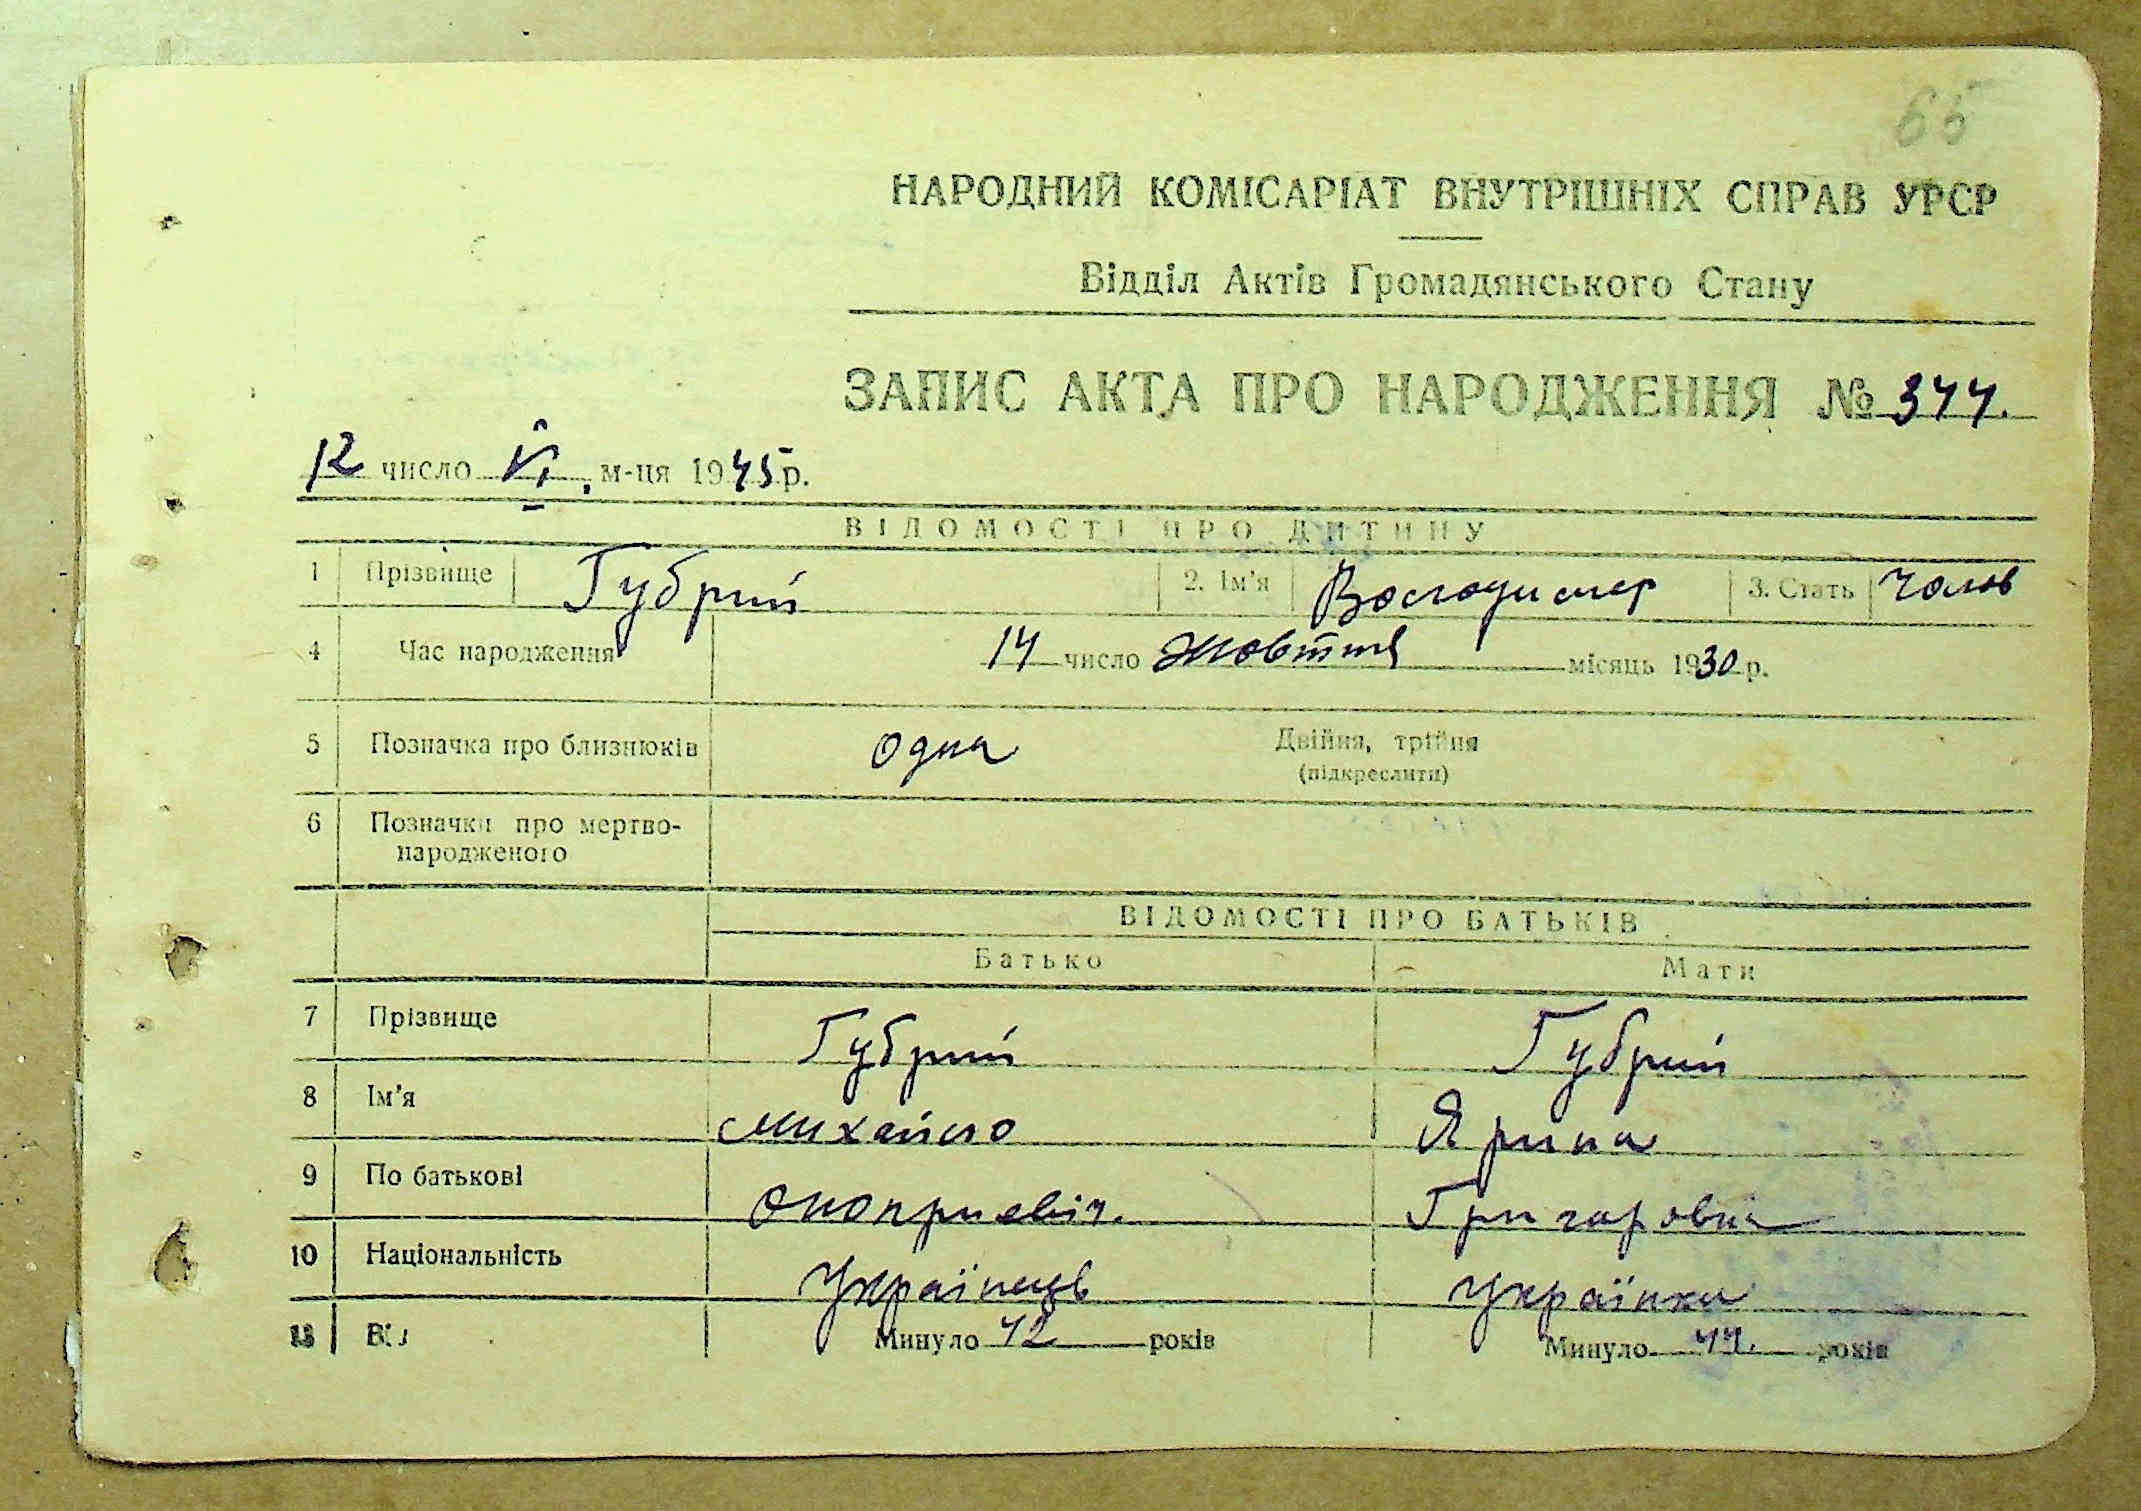 65
НАРОДНИЙ КОМІСАРІАТ ВНУТРІШНІХ СПРАВ УРСР
Відділ Актів Громадянського Стану
ЗАПИС АКТА ПРО НАРОДЖЕННЯ № 344.
12 число VI, м-ця 1945 р.
ВІДОМОСТІ ПРО ДИТИНУ
1 Прізвище Губрий 2. Ім'я Володимер 3. Стать Чолов
4 Час народження 14 число жовтня місяць 1930 р.
5 Позначка про близнюків одна Двійня, трійня
(підкреслити)
6 Позначки про мертво-
народженого
ВІДОМОСТІ ПРО БАТЬКІВ
Батько Мати
7 Прізвище Губрий Губрий
8 Ім'я Михайло Ярина
9 По батькові Оноприєвіч. Григоровна
10 Національність Українець Українка
11 Вік Минуло 42 років Минуло 44. років